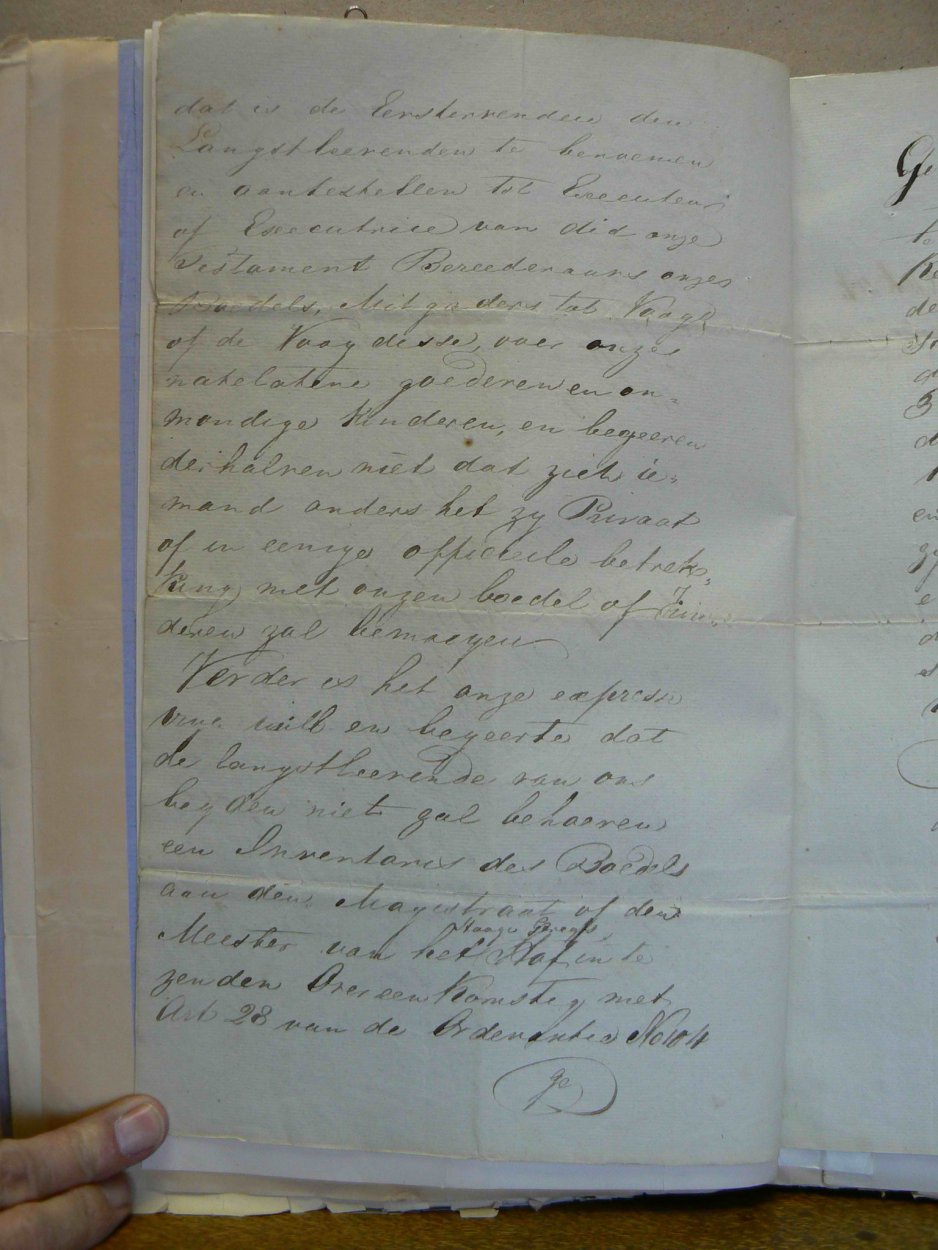 dat is de Eerstervenden den
Langstleevenden te benoemen
en aantestellen tot Executeur
of Executrice van did onze
Testament Bereederaars onzes
Boedels, Mitgaders tot Voogd
of de Voogdesse, over onze
natelatene goederen en on=
mondige Kinderen, en begeeren
derhalven niet dat zich ie=
mand anders het zy Privaat
of in eenige officieele betrek=
king met onzen boedel of Kin=
deren zal bemoeyen
Verder is het onze expresse
will en begeerte dat
de langstleevende van ons
beyden niet zal behoeven
een Inventaris des Boedels
aan den Magistraat of den
Hooge Geregts
Meester van het Hof in te
zenden Overeenkomstig met
Art 28 van de Ordenantie No 104
ge
Ge